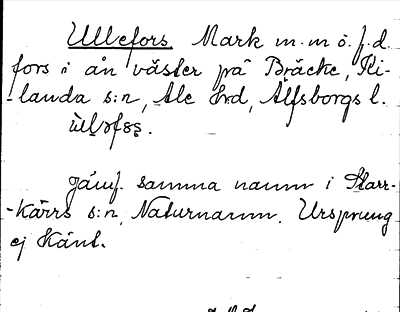 Ullefors. Mark m.m ö. f. d.
fors i ån väster på Bräcke, Ki-
-landa s:n, Ale hrd, Älfsborgs l.
Jämf. samma namn i Starr-
-kärrs s:n, Naturnamn. Ursprung
ej känt.